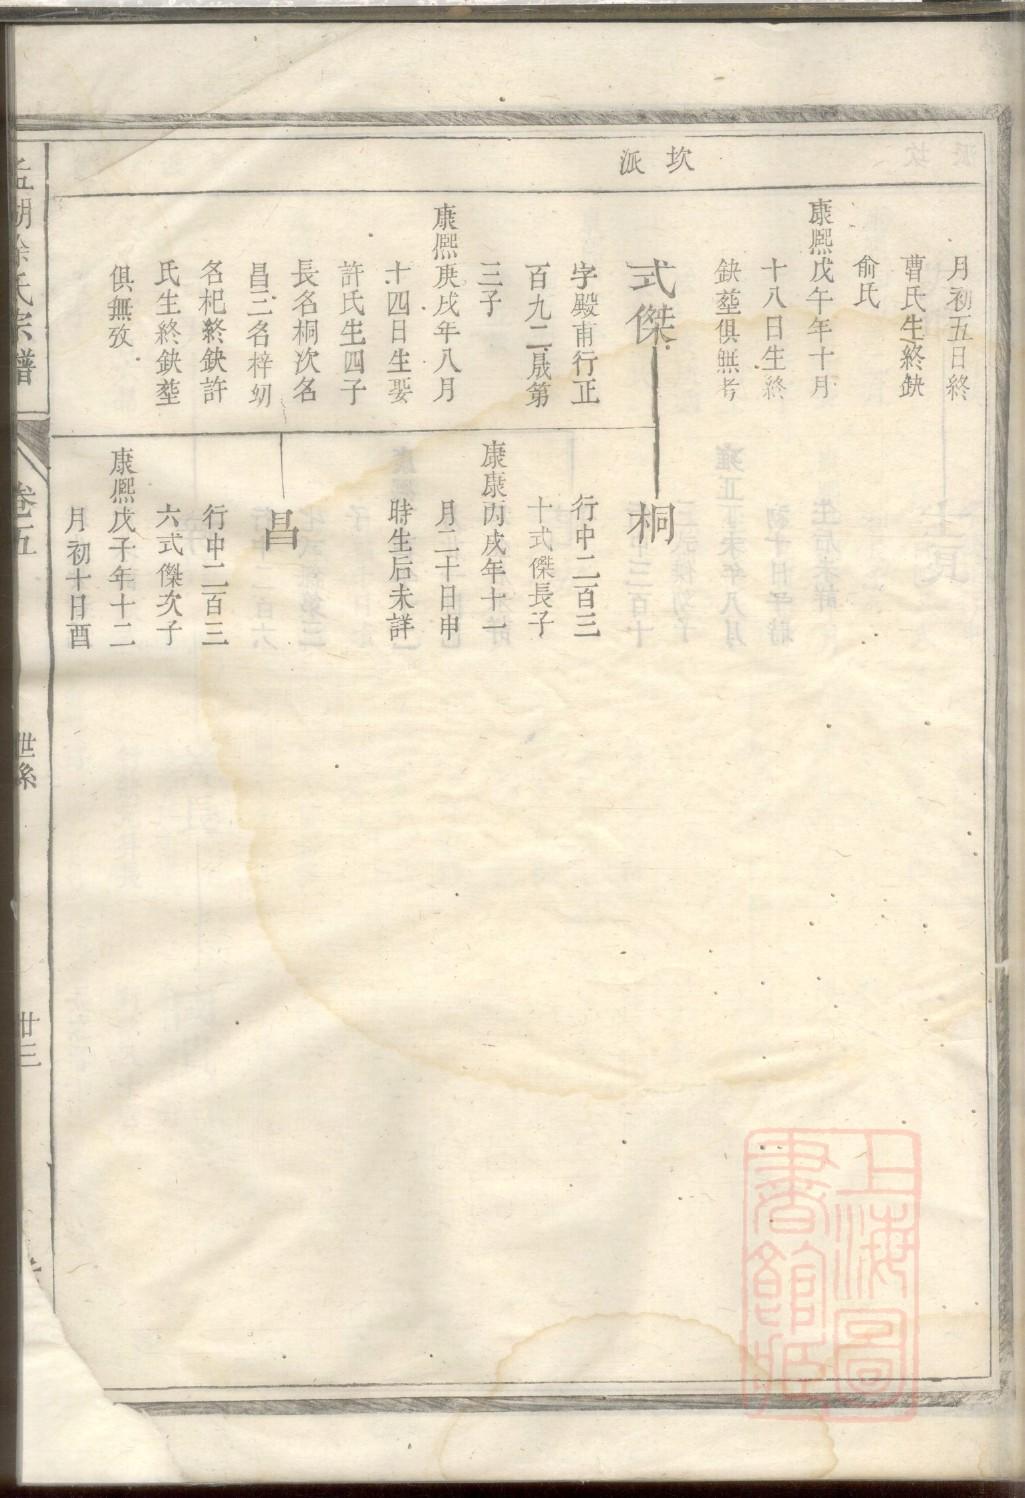 坎派
月初五日終
曹氏生終缺
俞氏
康熈戊午年十月
十八日生終
缺塟俱無考
式傑
字殿甫行正
百九二晟第
三子
康熈庚戌年八月
十四日生娶
許氏生四子
長名桐次名
昌三名梓㓜
名杞終缺許
氏生終缺塟
俱無攷
桐
行中二百三
十式傑長子
康康丙戌年十一
月二十日申
時生后未詳
昌
行中二百三
六式傑次子
康熈戊子年十二
月初十日酉
孟湖徐氏宗譜
卷五
世系
卅三
上海圖
書館藏